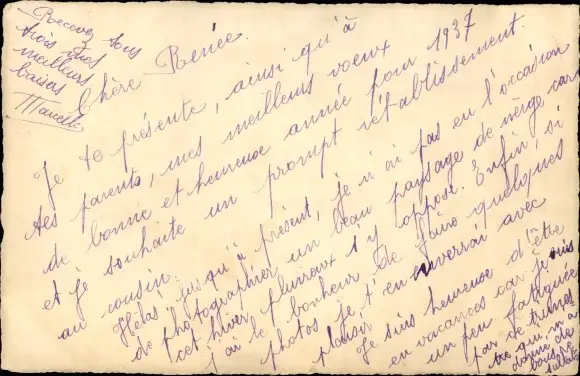 Recevez tous
trois mes
meilleurs
baisers
Chère Renée.
Je te présente, ainsi qu'à
tes parents, mes meilleurs voeux
de bonne et heureuse année pour 1937
et je souhaite un prompt rétablissement.
au cousin.
Hélas! jusqu'à présent, je n'ai pas eu l'occasion
de photographier un beau paysage de neige car
cet hiver pluvieux s'y oppose. Enfin, si
j'ai le bonheur de faire quelques
photos je t'en enverrai avec
plaisir.
Je suis heureuse d'être
en vacances car je suis
un peu fatiguée
par ce trimes
tre qui m'a
donné de
bons ré
sultats